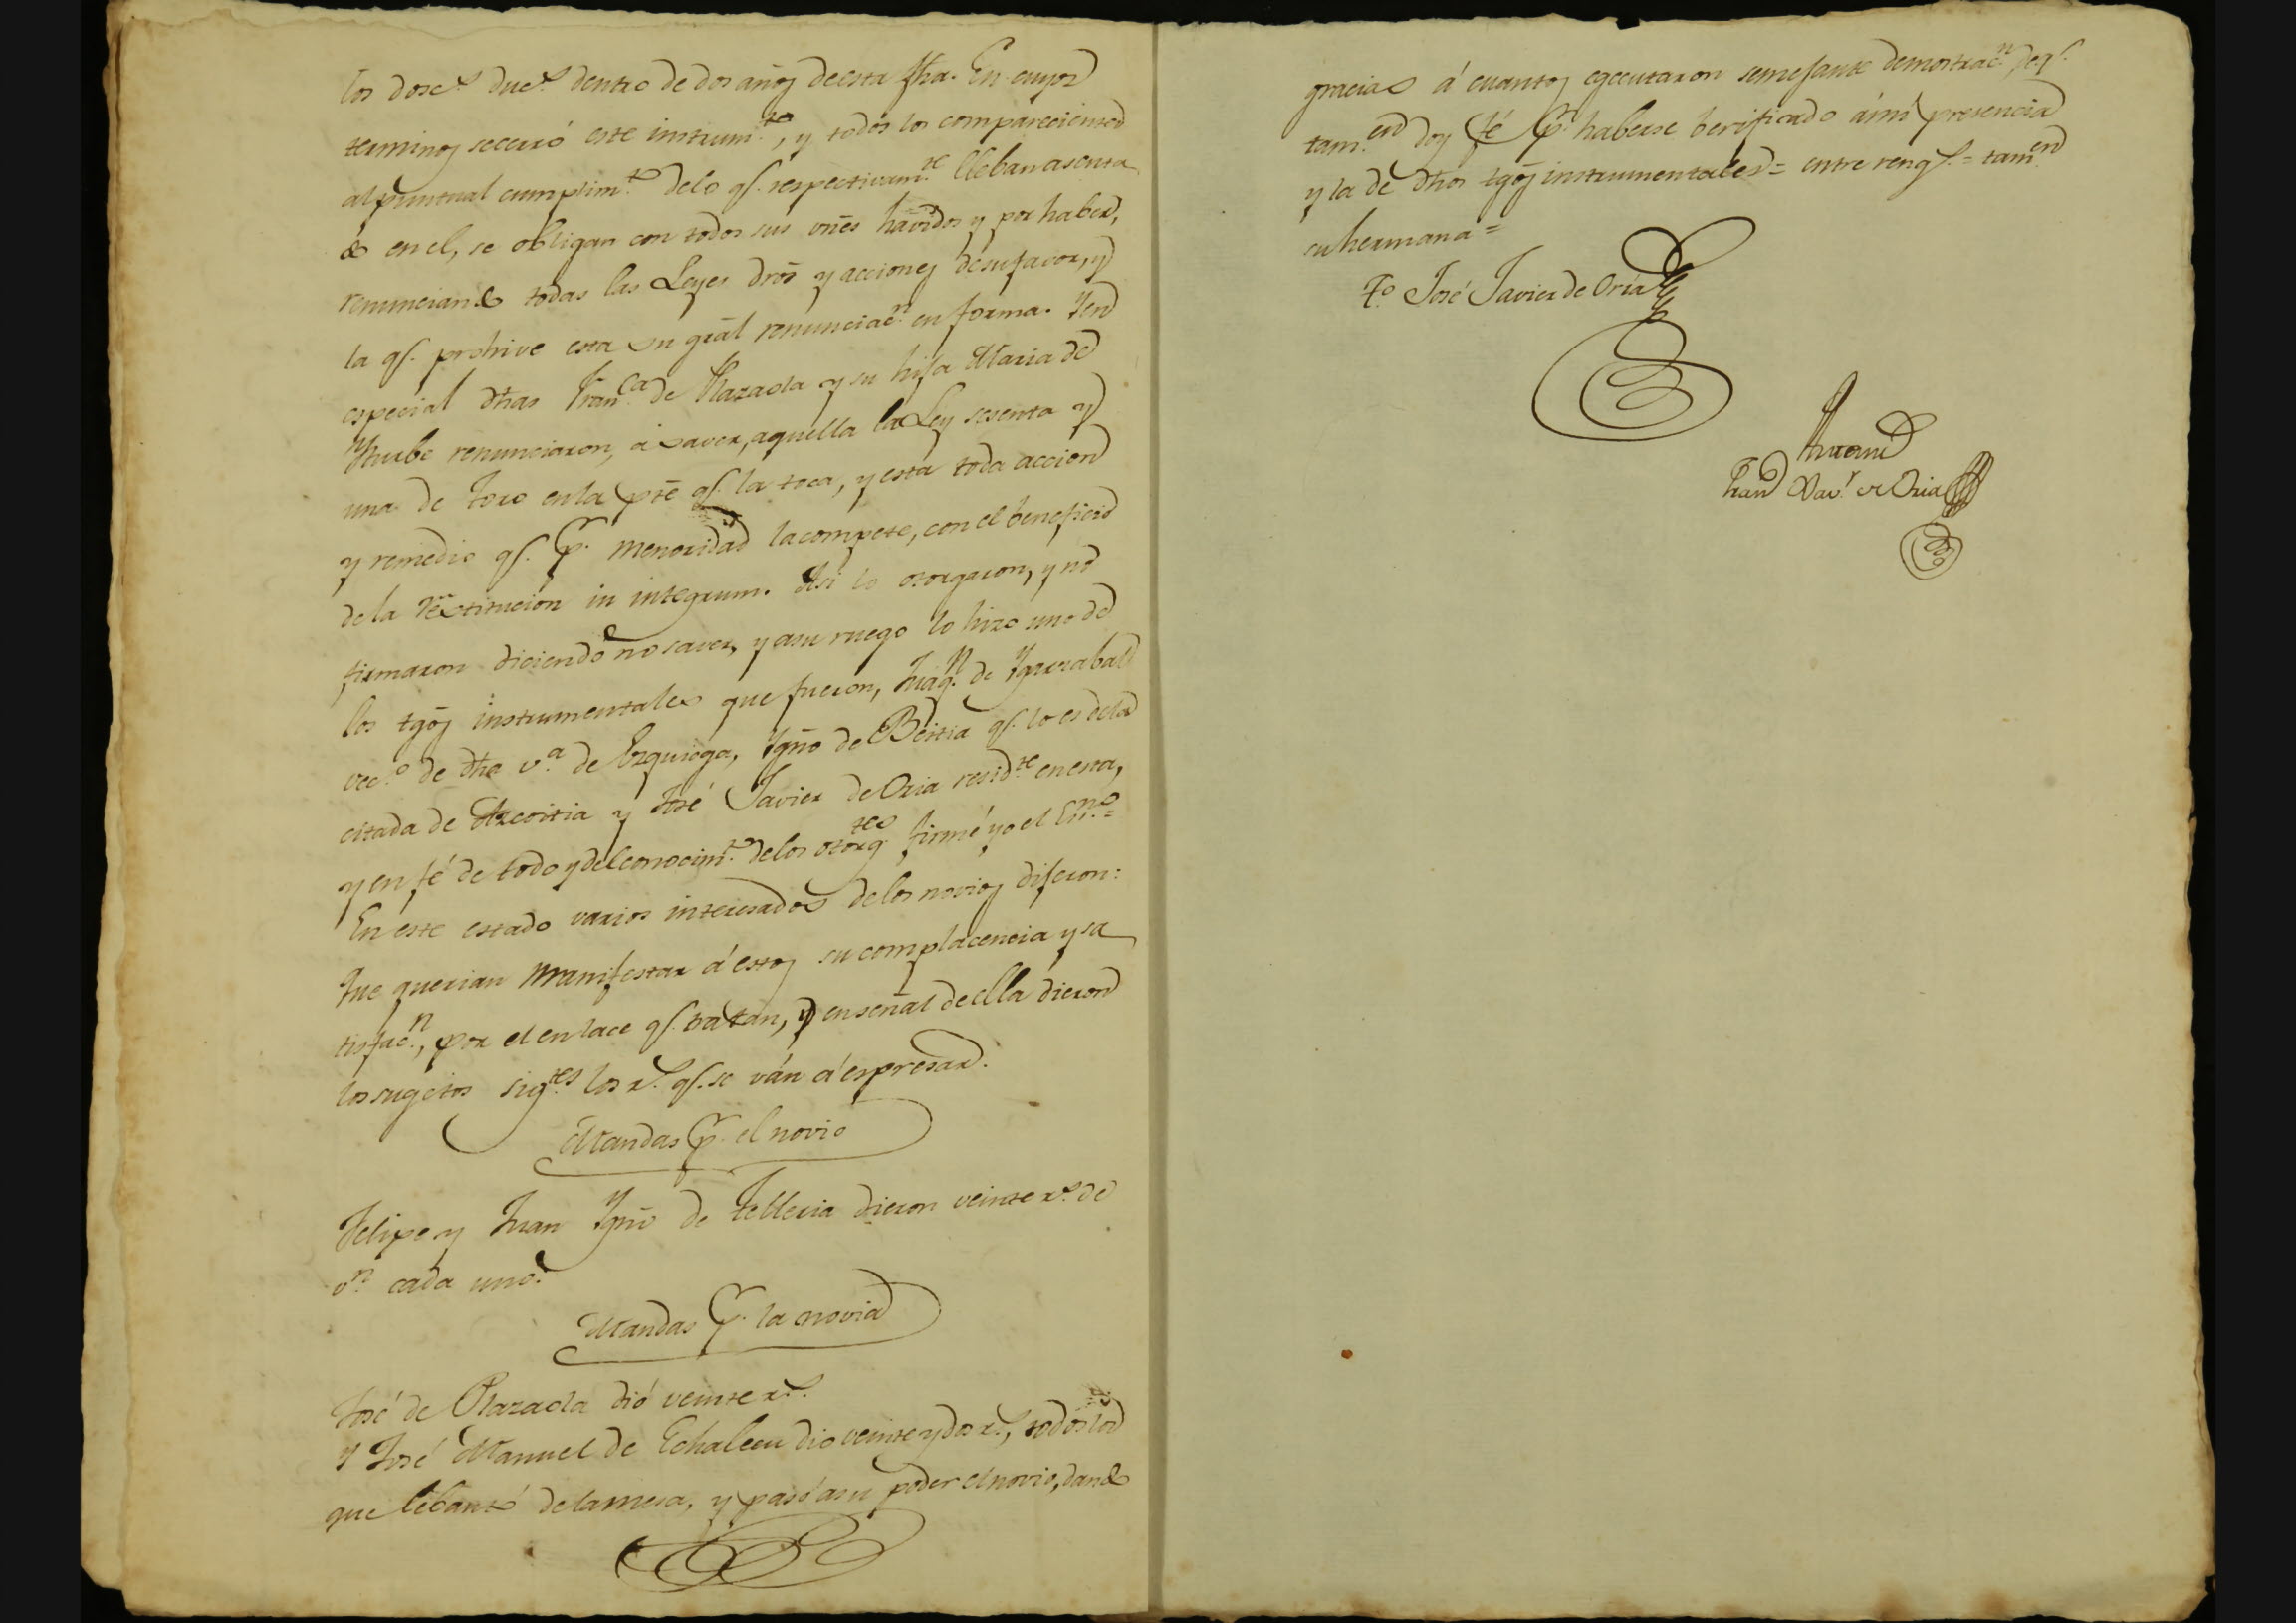 los dosc.s duc.s dentro de dos años de esta fha. En cuyos
terminos se cerró este instrum.to, y todos los comparecientes
al puntual cumplim.to de lo q.e respectivam.te lleban asenta
do en el, se obligan con todos sus vñes havidos y por haber,
renunciando todas las Leyes dros y acciones de su favor, y
la q.e prohive esta en gral renunciac.n en forma. Y en
especial dhas Fran.ca de Plazaola y su hija Maria de
Yturbe renunciaron, á saver, aquella la Ley sesenta y
una de Toro en la pte q.e la toca, y esta toda accion
y remedio q.e p.r menoridad la compete, con el beneficio
de la restitucion in integrum. Asi lo otorgaron, y no
firmaron diciendo no saver, y a su ruego lo hizo uno de
los tgos instrumentales que fueron, Juaq.n de Ygarzabal
vec.o de dha v.a de Ezquioga, Ygno de Beitia q.e lo es de la
citada de Azcoitia y José Javier de Oria resid.te en esta,
y en fé de todo y del conocim.to de los otorg.tes firmé yo el Esn.no =
En este estado varios interesados de los novios dijeron:
Que querian manifestar á estos su complacencia y sa
tisfac.n, por el enlace q.e tratan, y en señal de ella dieron
los sugetos sig.tes los r.s q.e se ván á espresar.
Mandas p.r el novio
Felipe y Juan Ygno de Telleria dieron veinte r.s de
v.n cada uno.
Mandas p.r la novia
José de Plazaola dió veinte r.s.
Y José Manuel de Echalecu dio veinte y dos r.s, todos los
que lebantó de la mesa, y pasó a su poder el novio, dando
gracias á cuantos egecutaron semejante demostrac.n, de q.e
tam.en doy fé p.r haberse berificado á mi presencia
y la de dhos tgos instrumentales = entre reng.s = tam.en
su hermana =
T.o José Javier de Oria
Antemi
Fran.co Xav.r de Oria